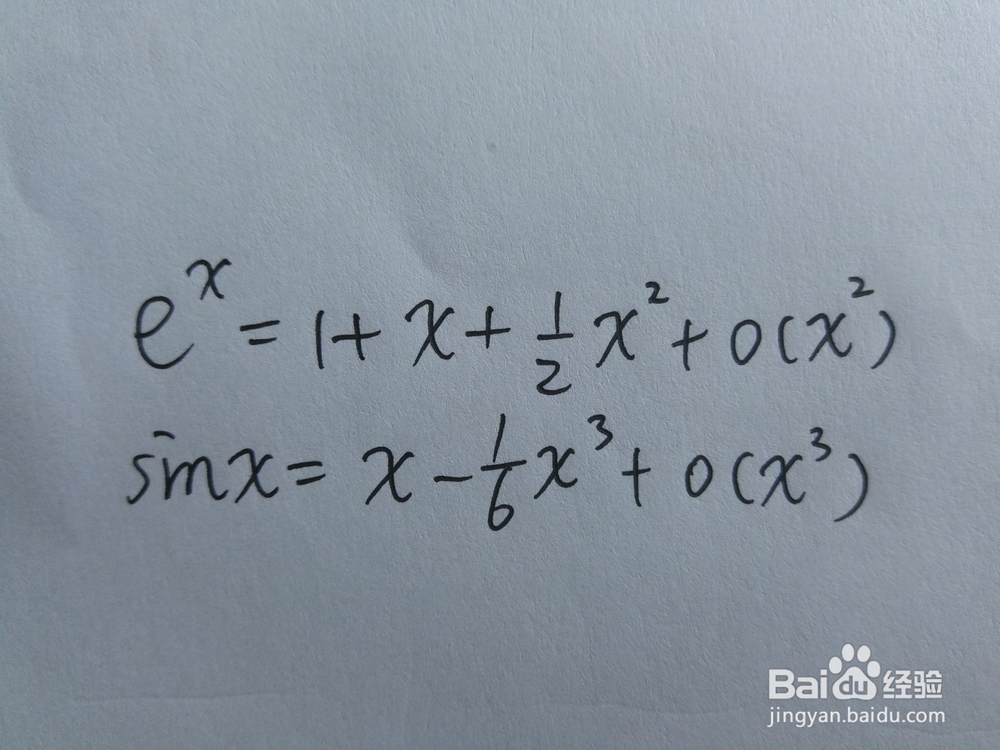 e^x = 1 + x + 1/2 x² + o(x²)
sin x = x - 1/6 x³ + o(x³)
Baidu 经验
jingyan.baidu.com